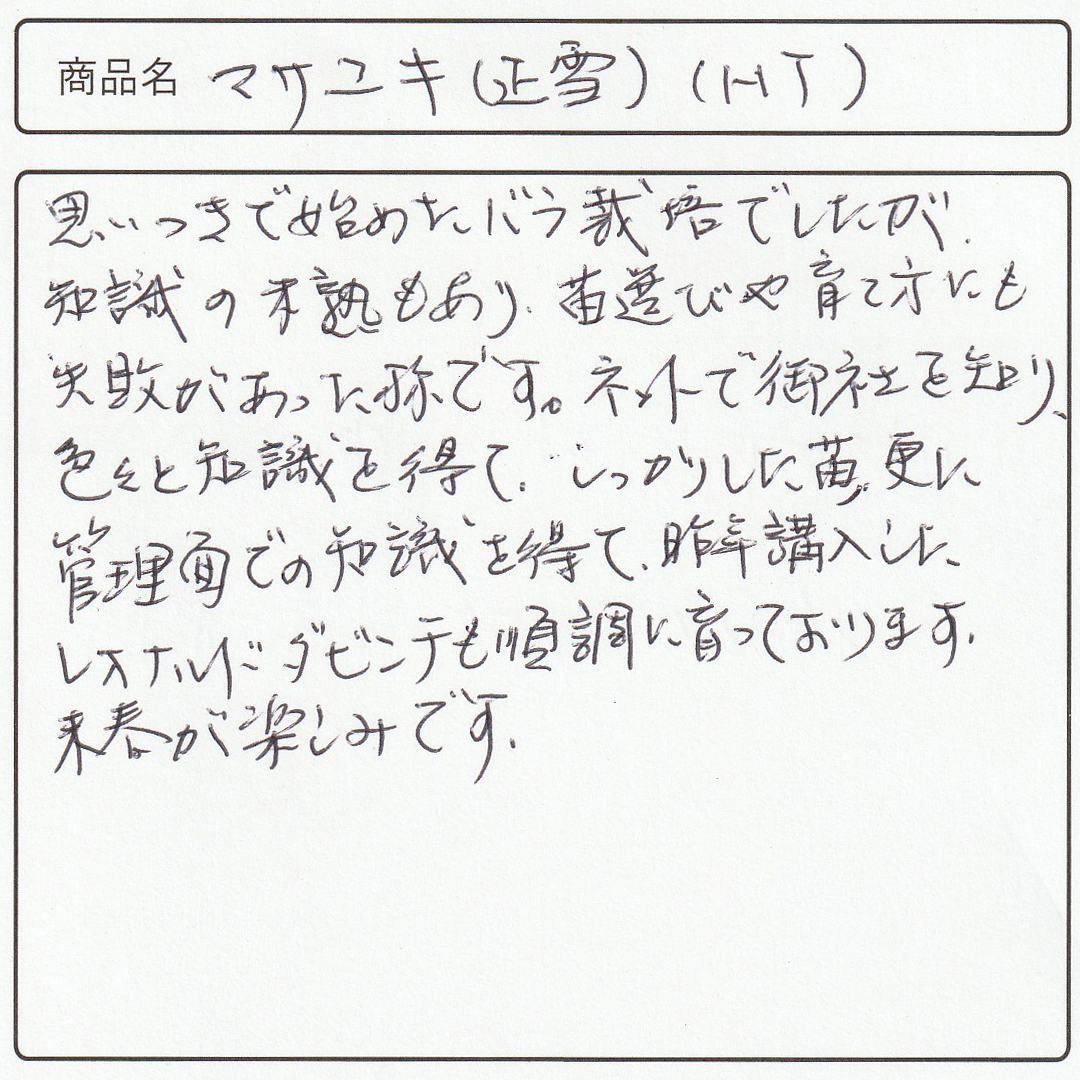 商品名 マサユキ(正雪)(HT)
思いつきで始めたバラ栽培でしたが、
知識の未熟もあり、苗選びや育て方にも
失敗があった様です。ネットで御社を知り、
色々と知識を得て、しっかりした苗、更に
管理面での知識を得て、昨年講入した
レオナルドダビンチも順調に育っております。
来春が楽しみです。